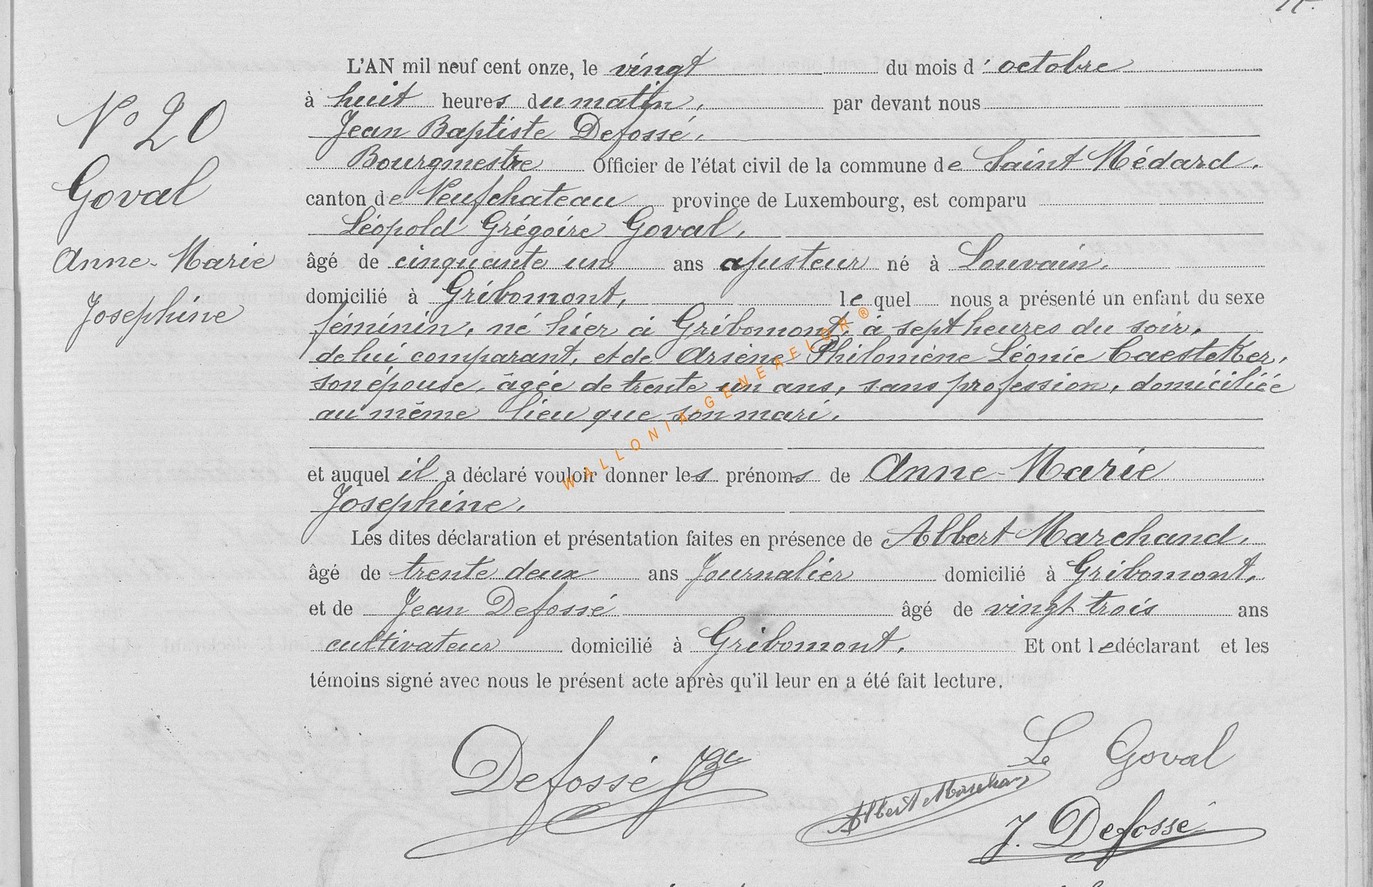 N° 20
Goval
Anne-Marie
Josephine
L'AN mil neuf cent onze, le vingt du mois d'octobre
à huit heures du matin, par devant nous
Jean Baptiste Defossé,
Bourgmestre Officier de l'état civil de la commune de Saint Médard,
canton de Neufchateau province de Luxembourg, est comparu
Léopold Grégoire Goval,
âgé de cinquante un ans ajusteur né à Louvain,
domicilié à Gribomont, lequel nous a présenté un enfant du sexe
féminin, né hier à Gribomont, a sept heures du soir,
de lui comparant, et de Arsène Philomène Léonie Caesteker,
son épouse, âgée de trente un ans, sans profession, domiciliée
au même lieu que son mari,
et auquel il a déclaré vouloir donner les prénoms de Anne-Marie
Josephine.
Les dites déclaration et présentation faites en présence de Albert Marchand,
âgé de trente deux ans Journalier domicilié à Gribomont,
et de Jean Defossé âgé de vingt trois ans
cultivateur domicilié à Gribomont, Et ont le déclarant et les
témoins signé avec nous le présent acte après qu'il leur en a été fait lecture.
Defossé Jbe
Le Goval
Albert Marchand
J. Defossé
WALLONIA-GENEAFLOR ®